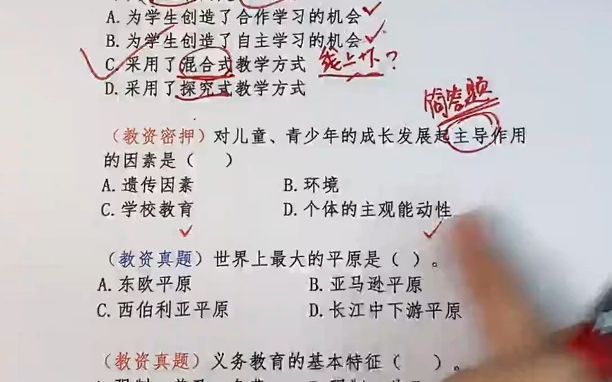 A.为学生创造了合作学习的机会
B.为学生创造了自主学习的机会
C.采用了混合式教学方式 线上下？
D.采用了探究式教学方式
简答题
（教资密押）对儿童、青少年的成长发展起主导作用
的因素是（ ）
A.遗传因素 B.环境
C.学校教育 D.个体的主观能动性
（教资真题）世界上最大的平原是（ ）。
A.东欧平原 B.亚马逊平原
C.西伯利亚平原 D.长江中下游平原
（教资真题）义务教育的基本特征（ ）。